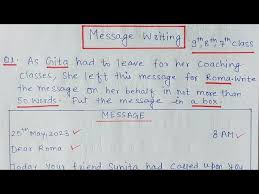 Message Writing
9th 8th 7th Class
Q1. As Gita had to leave for her Coaching
classes, She left this message for Roma. Write
the message on her behalf in not more than
50 words. Put the message in a box.
MESSAGE
25th May, 2023
8 AM
Dear Roma
Today your friend Sunita had called upon you